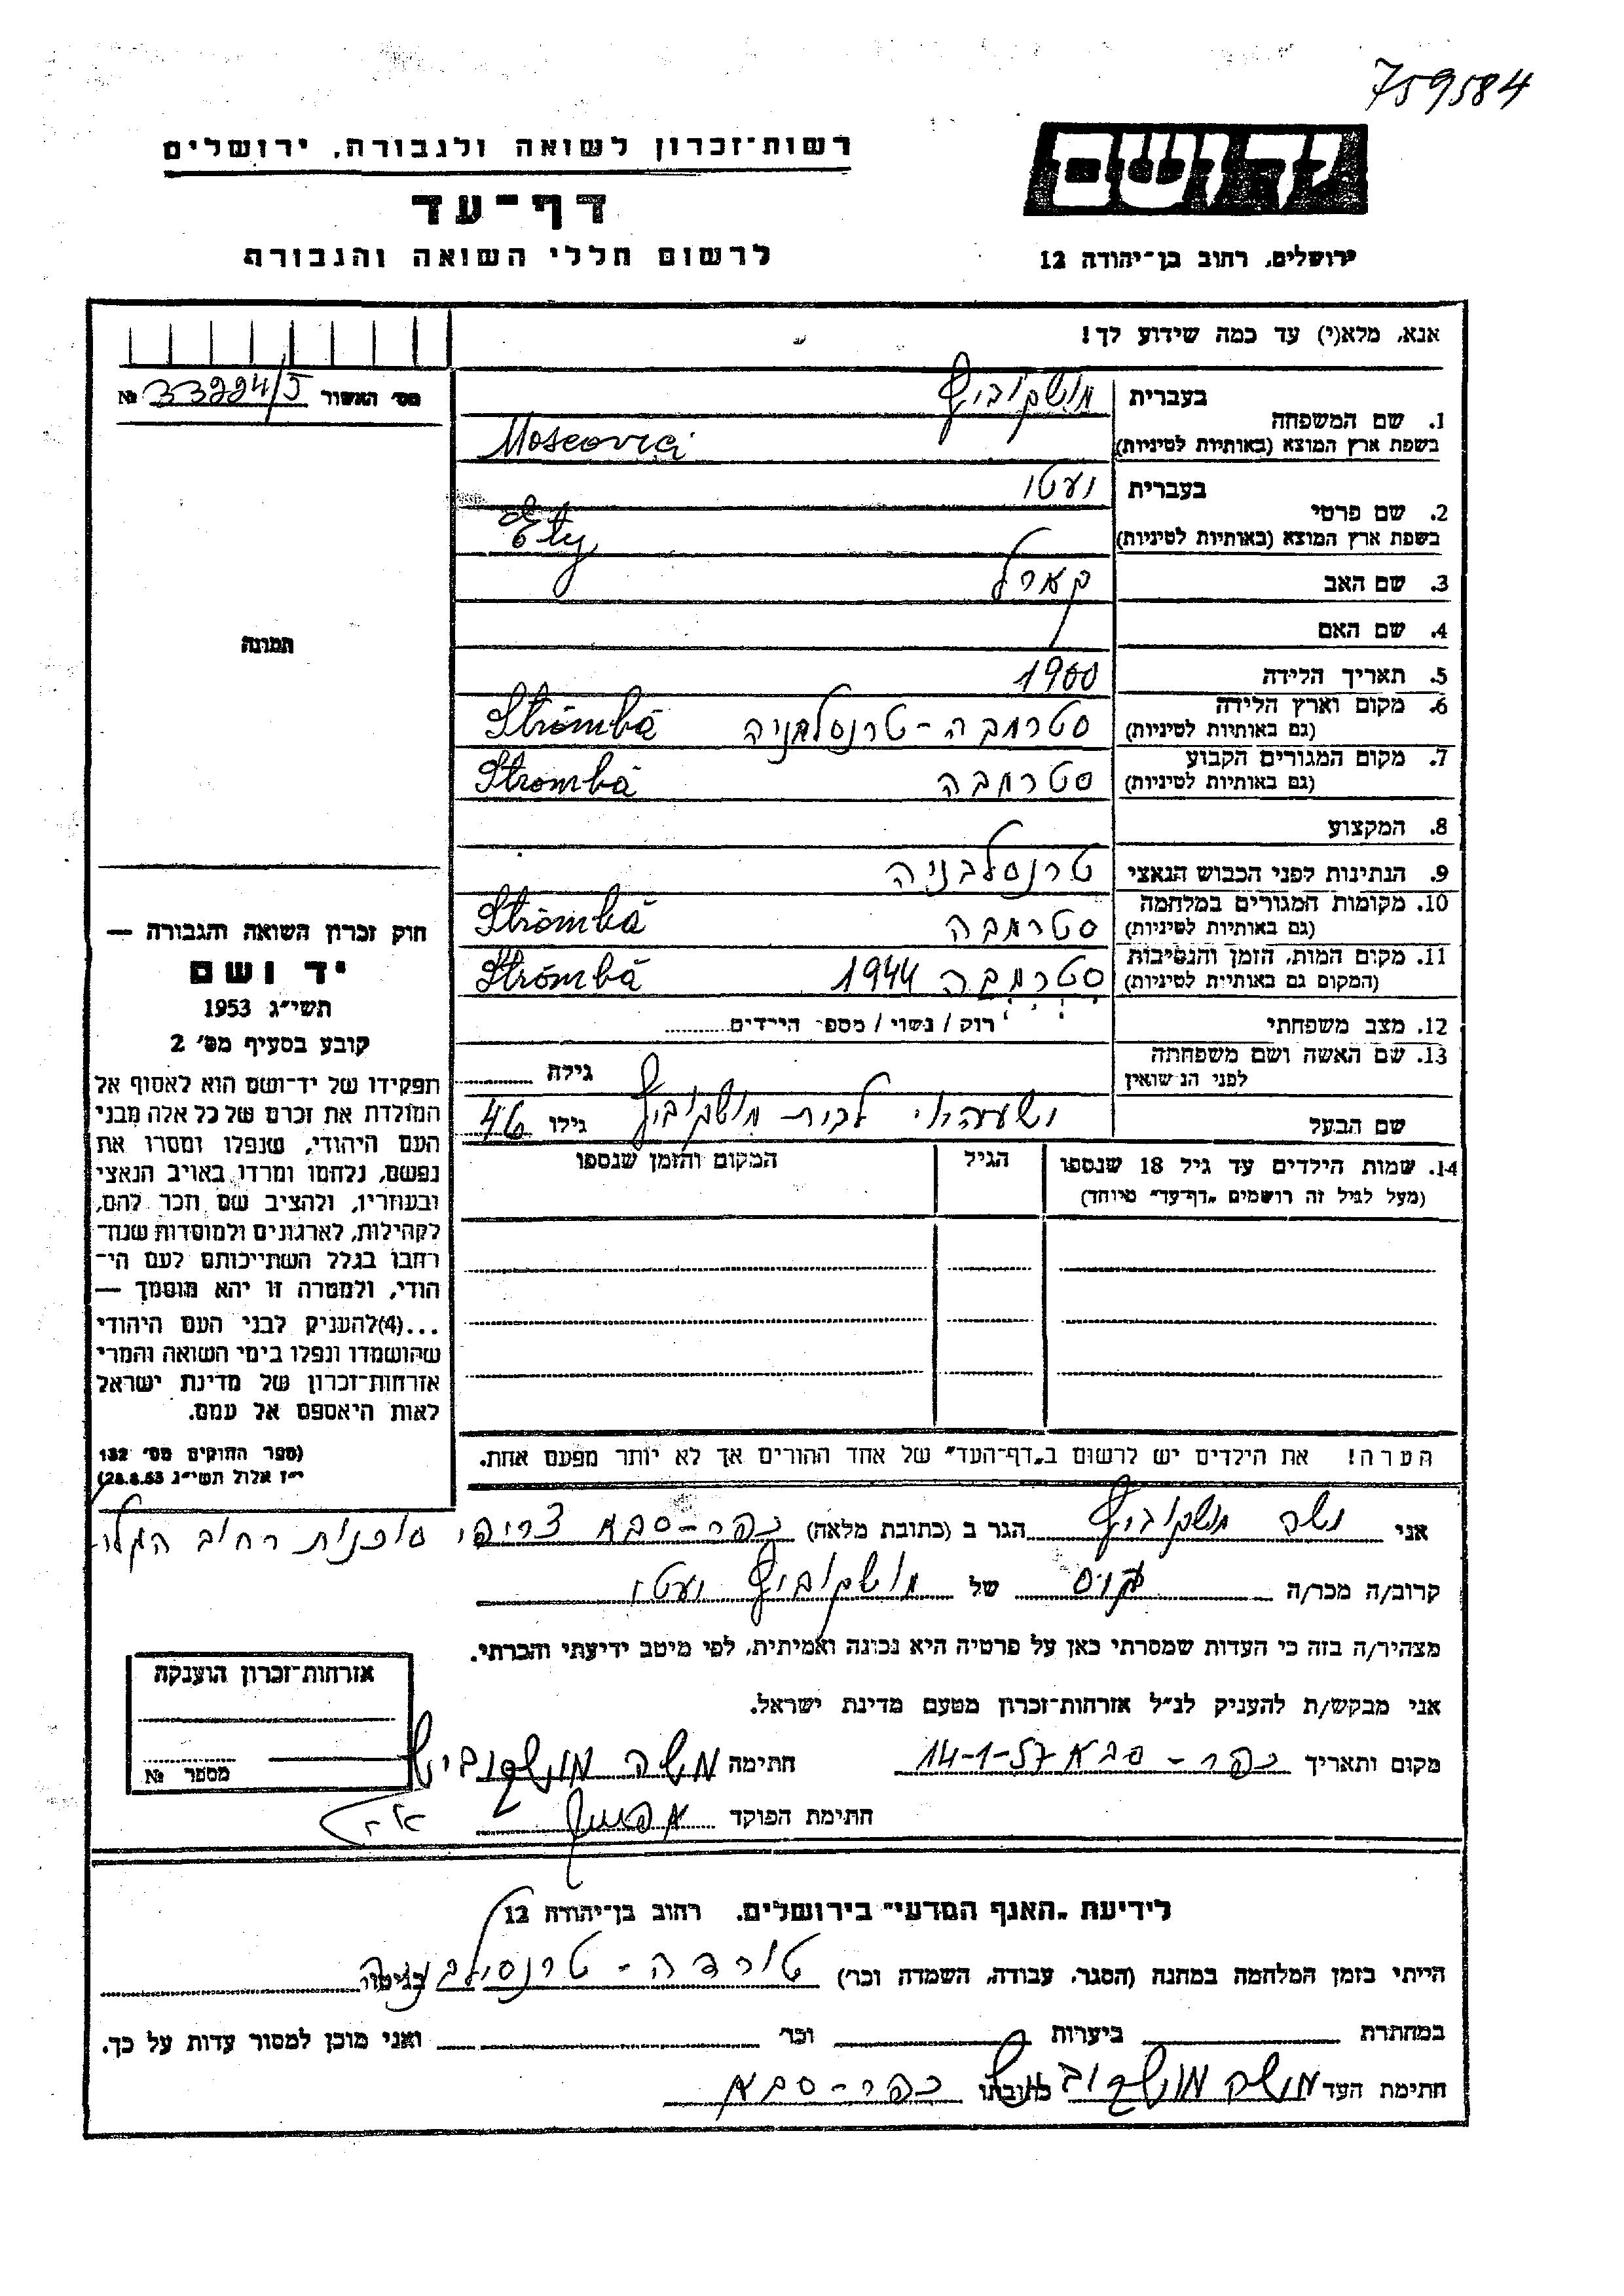 759584
יד ושם
רשות־זכרון לשואה ולגבורה, ירושלים
דף־עד
לרשום חללי השואה והגבורה
ירושלים, רחוב בן־יהודה 12
אנא, מלא(י) עד כמה שידוע לך!
מס' האשור 33224/5 №
1. שם המשפחה
בעברית מושקוביץ
בשפת ארץ המוצא (באותיות לטיניות) Moscovici
2. שם פרטי
בעברית ועטי
בשפת ארץ המוצא (באותיות לטיניות) Ety
3. שם האב קארל
4. שם האם
5. תאריך הלידה 1900
6. מקום וארץ הלידה
(גם באותיות לטיניות) סטרמבה - טרנסלבניה Strömbá
7. מקום המגורים הקבוע
(גם באותיות לטיניות) סטרמבה Strombá
8. המקצוע
9. הנתינות לפני הכבוש הנאצי טרנסלבניה
10. מקומות המגורים במלחמה
(גם באותיות לטיניות) סטרמבה Strömbá
11. מקום המות, הזמן והנסיבות
(המקום גם באותיות לטיניות) סטרמבה 1944 Strömbá
12. מצב משפחתי רוק / נשוי / מספר הילדים
13. שם האשה ושם משפחתה
לפני הנשואין גילה
שם הבעל לבית מושקוביץ גילו 46
14. שמות הילדים עד גיל 18 שנספו הגיל המקום והזמן שנספו
(מעל לגיל זה רושמים „דף־עד" מיוחד)
הערה! את הילדים יש לרשום ב„דף־העד" של אחד ההורים אך לא יותר מפעם אחת.
תמונה
חוק זכרון השואה והגבורה —
יד ושם
תשי"ג 1953
קובע בסעיף מס' 2
תפקידו של יד־ושם הוא לאסוף אל
המולדת את זכרם של כל אלה מבני
העם היהודי, שנפלו ומסרו את
נפשם, נלחמו ומרדו באויב הנאצי
ובעוזריו, ולהציב שם וזכר להם,
לקהילות, לארגונים ולמוסדות שנח־
רבו בגלל השתייכותם לעם הי־
הודי, ולמטרה זו יהא מוסמך —
...(4)להעניק לבני העם היהודי
שהושמדו ונפלו בימי השואה והמרי
אזרחות־זכרון של מדינת ישראל
לאות היאספם אל עמם.
(ספר החוקים מס' 132
י"ז אלול תשי"ג 28.8.53)
אני משה מושקוביץ הגר ב (כתובת מלאה) כפר-סבא צריפי סוכנות רחוב
קרוב/ה מכר/ה של מושקוביץ ועטי
מצהיר/ה בזה כי העדות שמסרתי כאן על פרטיה היא נכונה ואמיתית, לפי מיטב ידיעתי והכרתי.
אני מבקש/ת להעניק לנ"ל אזרחות־זכרון מטעם מדינת ישראל.
מקום ותאריך כפר-סבא 14-1-57 חתימה משה מושקוביץ
חתימת הפוקד
אזרחות־זכרון הוענקה
מספר №
לידיעת „האגף המדעי" בירושלים, רחוב בן־יהודה 12
הייתי בזמן המלחמה במחנה (הסגר, עבודה, השמדה וכו') טורדה - טרנסילבניה בגיטו
במחתרת ביערות וכו' ואני מוכן למסור עדות על כך.
חתימת העד משה מושקוביץ כתובתו כפר-סבא